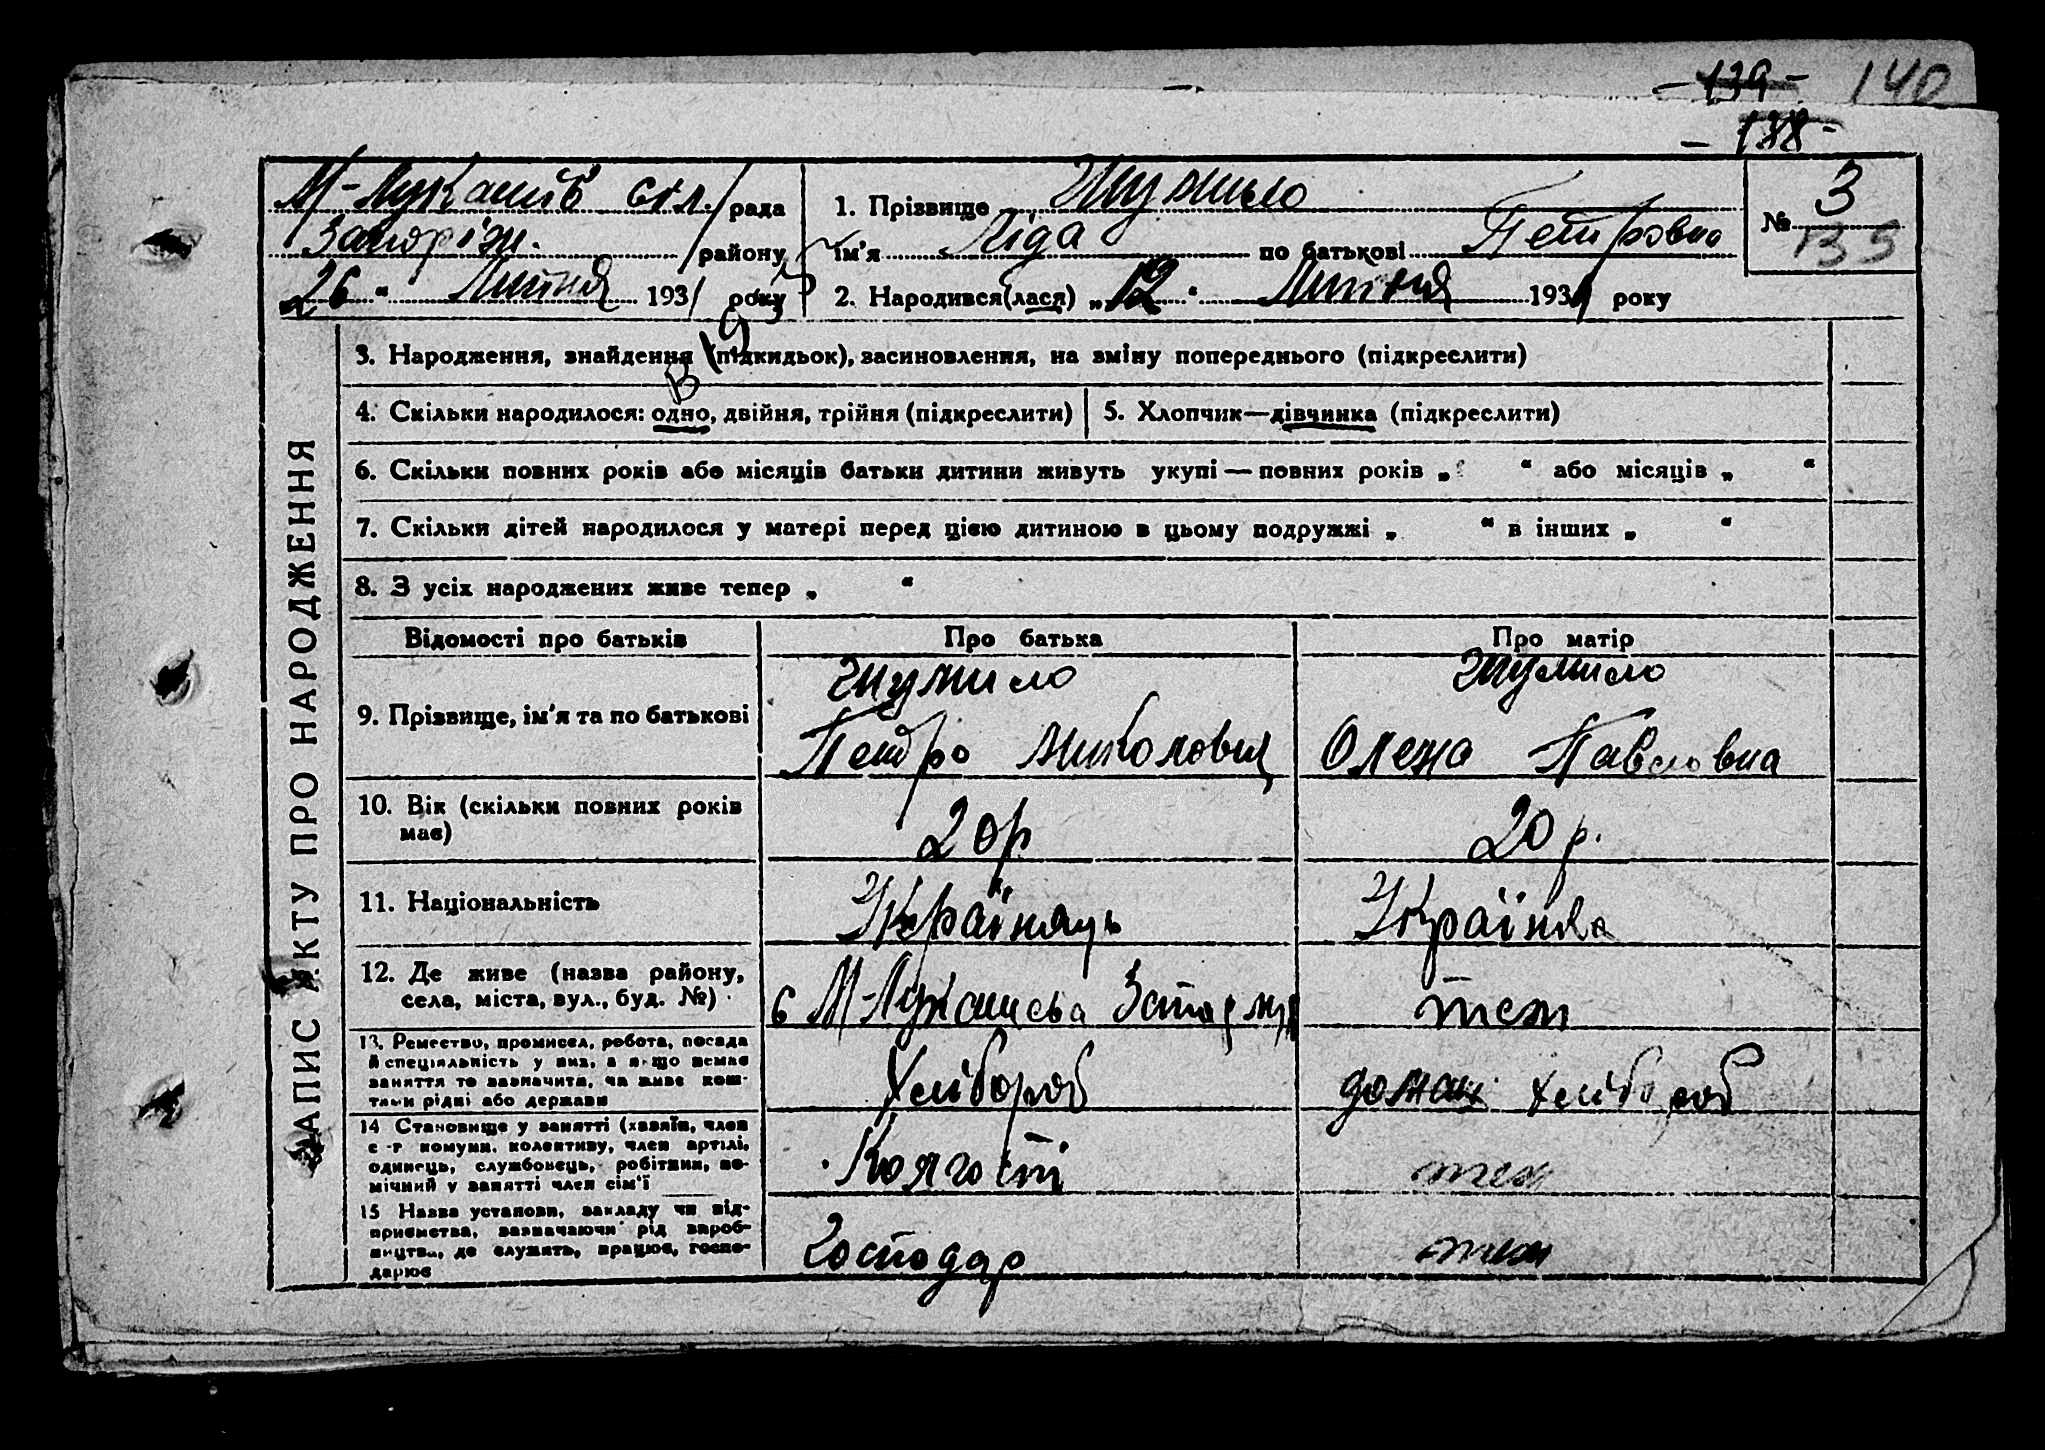 - 139 - 140
- 138 -
М-Лукашів сіл. рада
Запоріж. району
26 " Липня 1931 року
1. Прізвище Шумило
ім'я Ліда по батькові Петровна
2. Народився(лася) „ 12 " Липня 1931 року
№ 3
135
В 193
ЗАПИС АКТУ ПРО НАРОДЖЕННЯ
3. Народження, знайдення (підкидьок), засиновлення, на зміну попереднього (підкреслити)
4. Скільки народилося: одно, двійня, трійня (підкреслити)
5. Хлопчик—дівчинка (підкреслити)
6. Скільки повних років або місяців батьки дитини живуть укупі — повних років „ " або місяців „ "
7. Скільки дітей народилося у матері перед цією дитиною в цьому подружжі „ " в інших „ "
8. З усіх народжених живе тепер „ "
Відомості про батьків Про батька Про матір
9. Прізвище, ім'я та по батькові
Шумило
Петро Миколович
Шумило
Олена Павловна
10. Вік (скільки повних років
має)
20р
20 р.
11. Національність
Українець
Українка
12. Де живе (назва району,
села, міста, вул., буд. №)
М-Лукашева
теж
13. Ремество, промисел, робота, посада
й спеціяльність у них, а якщо немає
заняття то зазначити, чи живе кош-
тами рідні або держави
Хлібороб
хлібороб
14 Становище у занятті (хазяїн, член
с.-г комуни, колективу, член артілі,
одинець, службовець, робітник, по-
мічний у занятті член сім'ї
теж
15 Назва установи, закладу чи під-
приємства, зазначаючи рід вироб-
ництва, де служить, працює, госпо-
дарює
Господар
теж